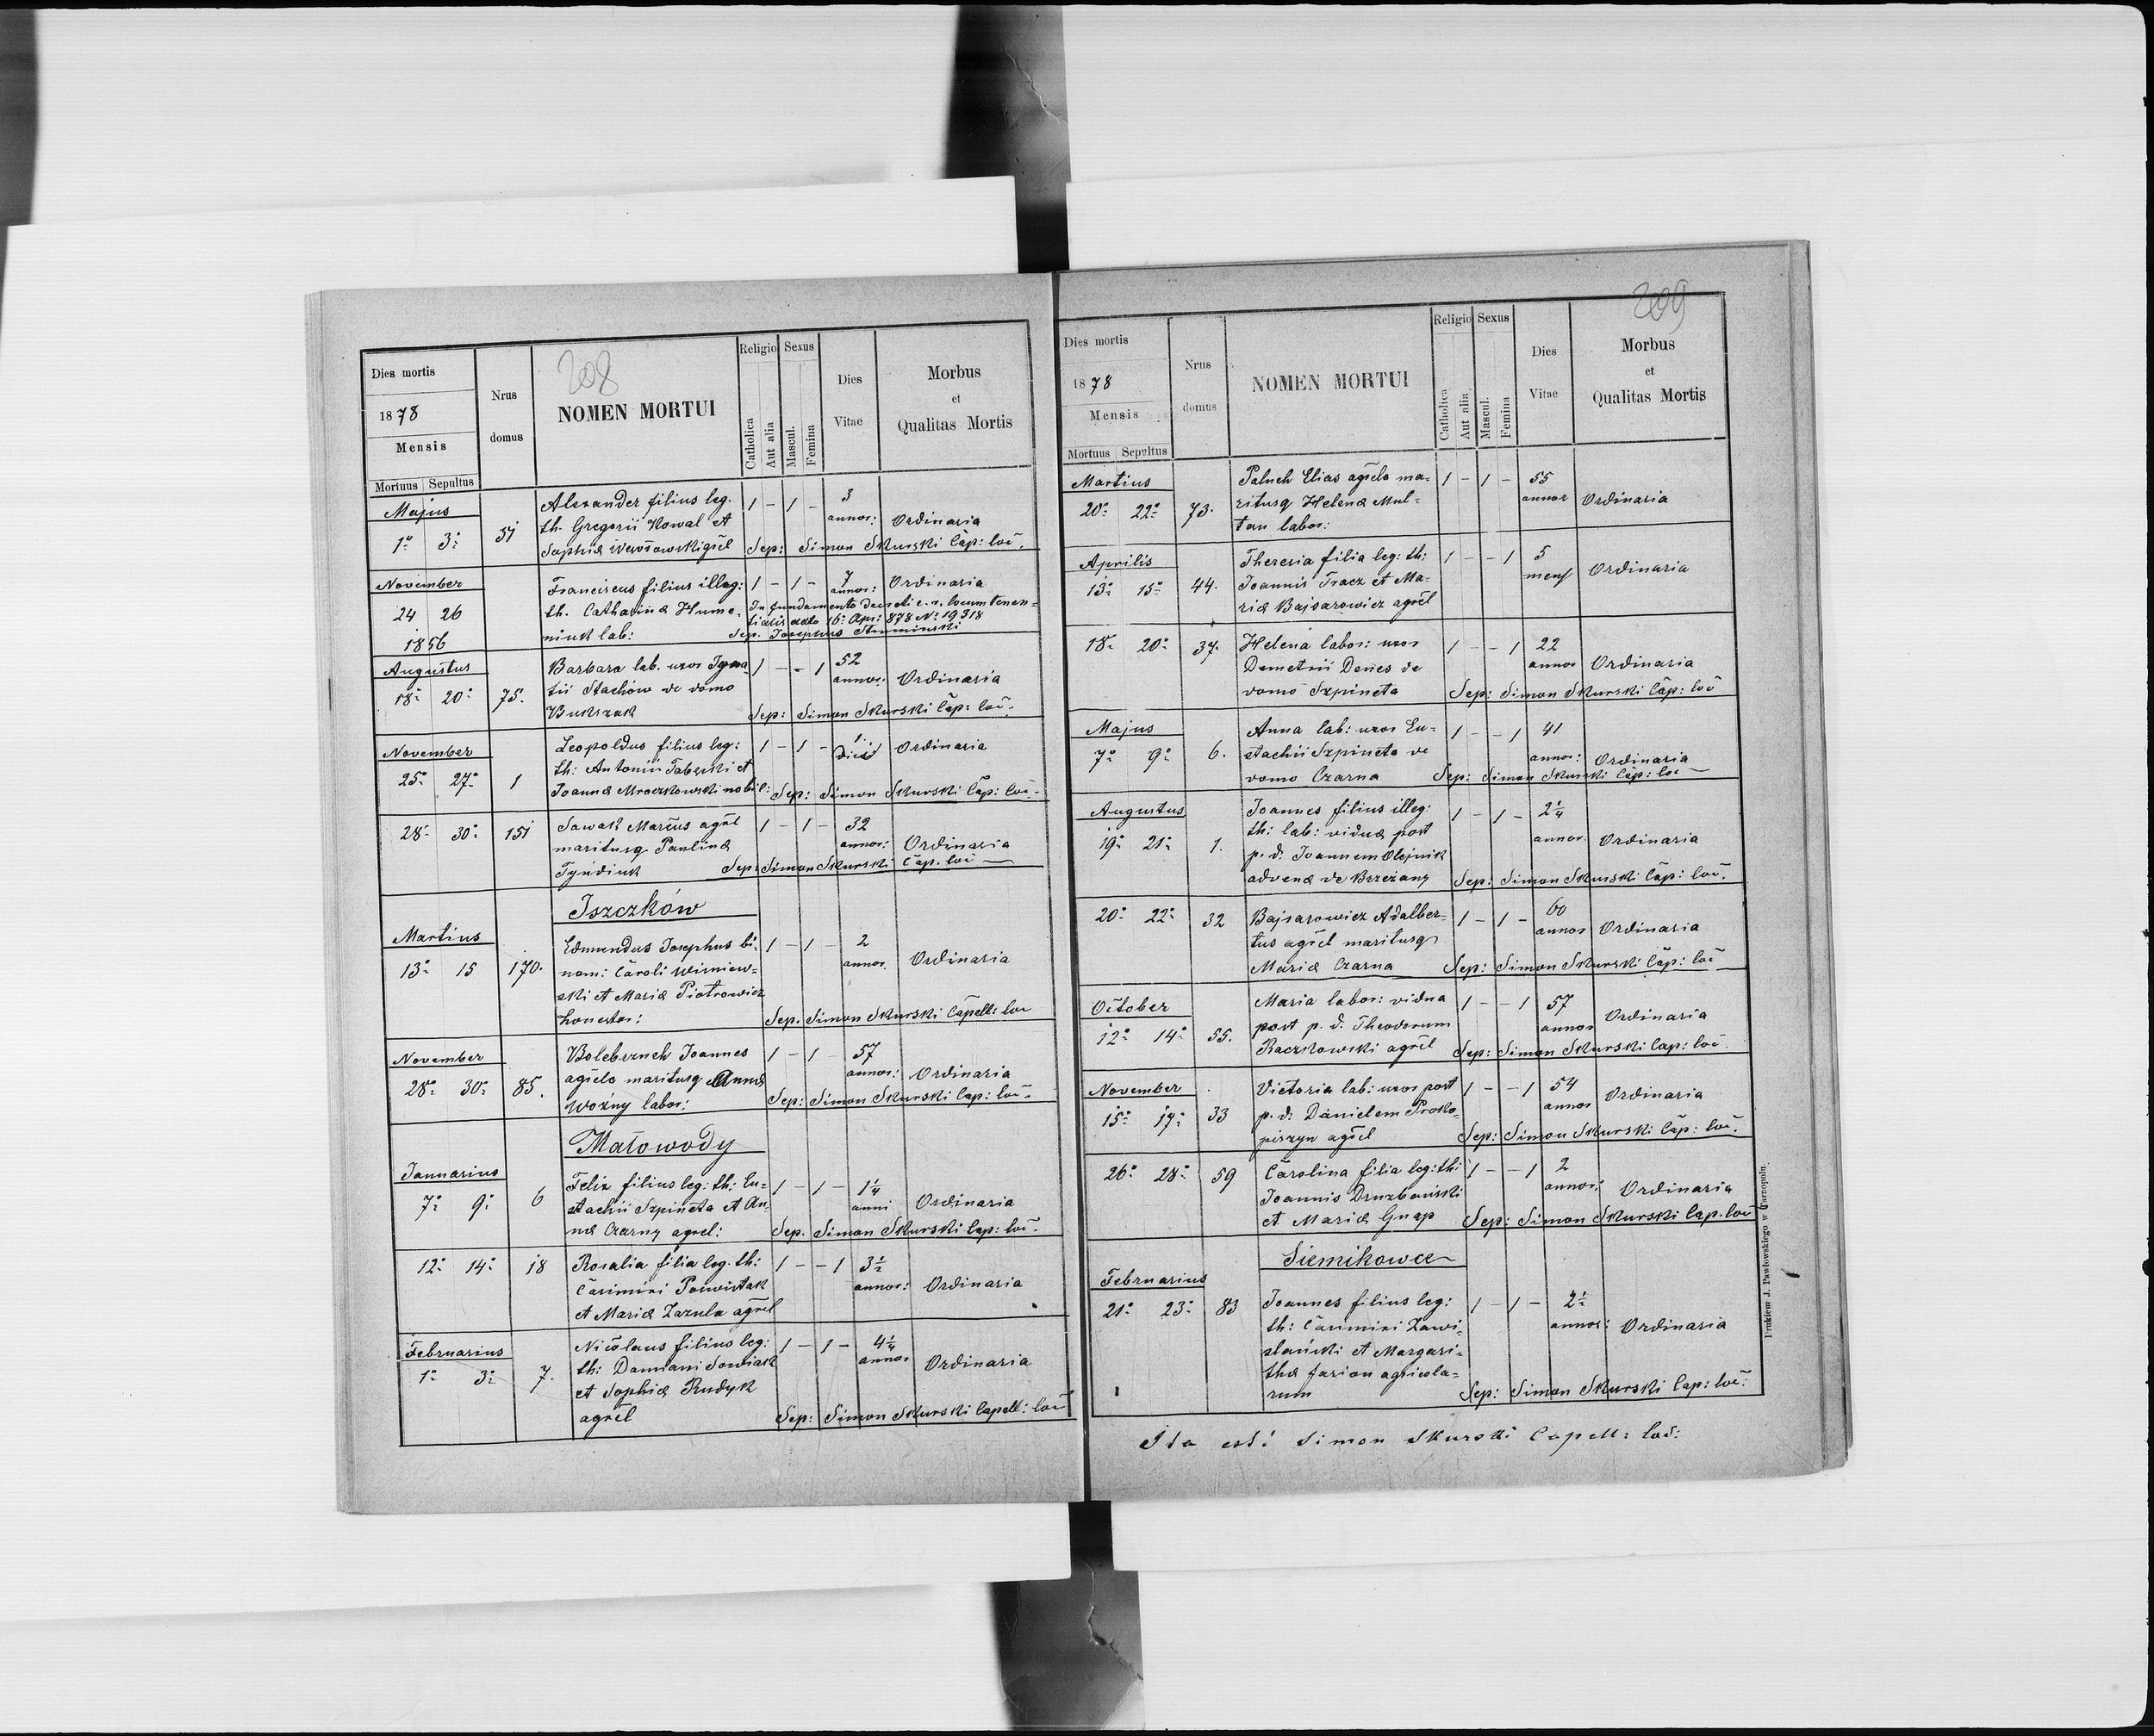 208
Dies mortis
1878
Mensis
Mortuus Sepultus
Nrus domus
NOMEN MORTUI
Religio Sexus
Catholica
Aut alia
Mascul.
Femina
Dies Vitae
Morbus
et
Qualitas Mortis
Majus
1º 3º 51
Alexander filius leg.
th. Gregorii Kowal et
Sophiæ
1 - 1 - 3 annor: Ordinaria
Sep: Simon Skurski Cap: loc.
November
24 26
1856
Franciscus filius illeg:
th. Catharinæ Hume-
niuk lab:
1 - 1 - 7 annor: Ordinaria
In fundamento Decreti c. r. locumtenen-
tialis ddto 16º Apr: 878 Nº 19318
Sep. Josephus
Augustus
18º 20º 75.
Barbara lab. uxor Igna-
tii Stachów de domo
Bukszak
1 - - 1 52 annor: Ordinaria
Sep: Simon Skurski Cap: loc.
November
25º 27º 1
Leopoldus filius leg:
th: Antonii et
Joannæ Mroczkowski nobil:
1 - 1 - 1 Ordinaria
Sep: Simon Skurski Cap: loc.
28º 30º 151
Sawak Marcus agricl
maritusq Paulinæ
1 - 1 - 32 annor: Ordinaria
Sep: Simon Skurski Cap. loc
Iszczków
Martius
13º 15 170.
Edmundus Josephus bi-
nom: Caroli Wisniew-
ski et Mariæ Piotrowicz
honestor:
1 - 1 - 2 annor. Ordinaria
Sep. Simon Skurski Capell: loc
November
28º 30º 85.
Joannes
maritusq Annæ
Woźny labor:
1 - 1 - 57 annor: Ordinaria
Sep: Simon Skurski Cap: loc.
Małowody
Januarius
7º 9º 6
Felix filius leg: th: Eu-
stachii Szpineta et An-
næ Czarny agrcl:
1 - 1 - 1¼ anni Ordinaria
Sep. Simon Skurski Cap: loc.
12º 14º 18
Rosalia filia leg. th:
Casimiri
et Mariæ Zazula agrcl
1 - - 1 3½ annor: Ordinaria
Februarius
1º 3º 7.
Nicolaus filius leg:
th: Damiani Sowiak
et Sophiæ Rudyk
agrcl
1 - 1 - 4¼ annor Ordinaria
Sep: Simon Skurski Capell: loc
209
Dies mortis
1878
Mensis
Mortuus Sepultus
Nrus domus
NOMEN MORTUI
Religio Sexus
Catholica
Aut alia
Mascul.
Femina
Dies Vitae
Morbus
et
Qualitas Mortis
Martius
20º 22º 73.
Paluch Elias agrclo ma-
ritusq Helenæ Mul-
tan labor:
1 - 1 - 55 annor Ordinaria
Aprilis
13º 15º 44.
Theresia filia leg: th:
Joannis Tracz et Ma-
riæ Bajsarowicz agrcl
1 - - 1 5 mens Ordinaria
18º 20º 37.
Helena labor: uxor
Demetrii Denes de
domo Szpineta
1 - - 1 22 annor Ordinaria
Sep: Simon Skurski Cap: loc
Majus
7º 9º 6.
Anna lab: uxor Eu-
stachii Szpineta de
domo Czarna
1 - - 1 41 annor: Ordinaria
Sep: Simon Skurski Cap: loc
Augustus
19º 21º 1.
Joannes filius illeg:
th: lab: viduæ post
p. d. Joannem Olejnik
advenæ de Brzeżany
1 - 1 - 2¼ annor. Ordinaria
Sep: Simon Skurski Cap: loc.
20º 22º 32
Bajsarowicz Adalber-
tus agricl maritusq
Mariæ Czarna
1 - 1 - 60 annor Ordinaria
Sep: Simon Skurski Cap: loc
October
12º 14º 55.
Maria labor: vidua
post p. d. Theodorum
Raczkowski agrcl
1 - - 1 57 annor Ordinaria
Sep: Simon Skurski Cap: loc.
November
15º 17º 33
Victoria lab: uxor post
p. d. Danielem Proko-
piszyn agricl
1 - - 1 54 annor Ordinaria
Sep: Simon Skurski Cap: loc.
26º 28º 59
Carolina filia leg: th:
Joannis Druzbański
et Mariæ Gnap
1 - - 1 2 annor: Ordinaria
Sep: Simon Skurski Cap. loc
Siemikowce
Februarius
21º 23º 83
Joannes filius leg:
th: Casimiri Zawi-
slański et Margari-
thæ Jarion agricola-
rum
1 - 1 - 2½ annor: Ordinaria
Sep: Simon Skurski Cap: loc:
Ita est! Simon Skurski Capell: loc:
Drukiem J. Pawłowskiego w Tarnopolu.